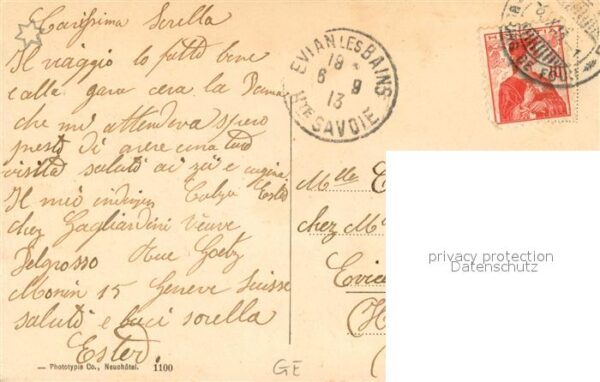 Carissima Sorella
Il viaggio lo fatto bene
e alla gara cera la Dama
che mi attendeva spero
presto di avere una tua
visita saluti ai zii e cugina
Il mio indirizzo Calza Ester
chez Gagliardini veuve
Delgrosso Rue Goetz
Monin 15 Geneve Suisse
saluti e baci sorella
Ester.
EVIAN LES BAINS
18
6 9
13
Hte SAVOIE
Mlle
chez M
Evia
(H
privacy protection
Datenschutz
— Phototypie Co., Neuchâtel. 1100
GE